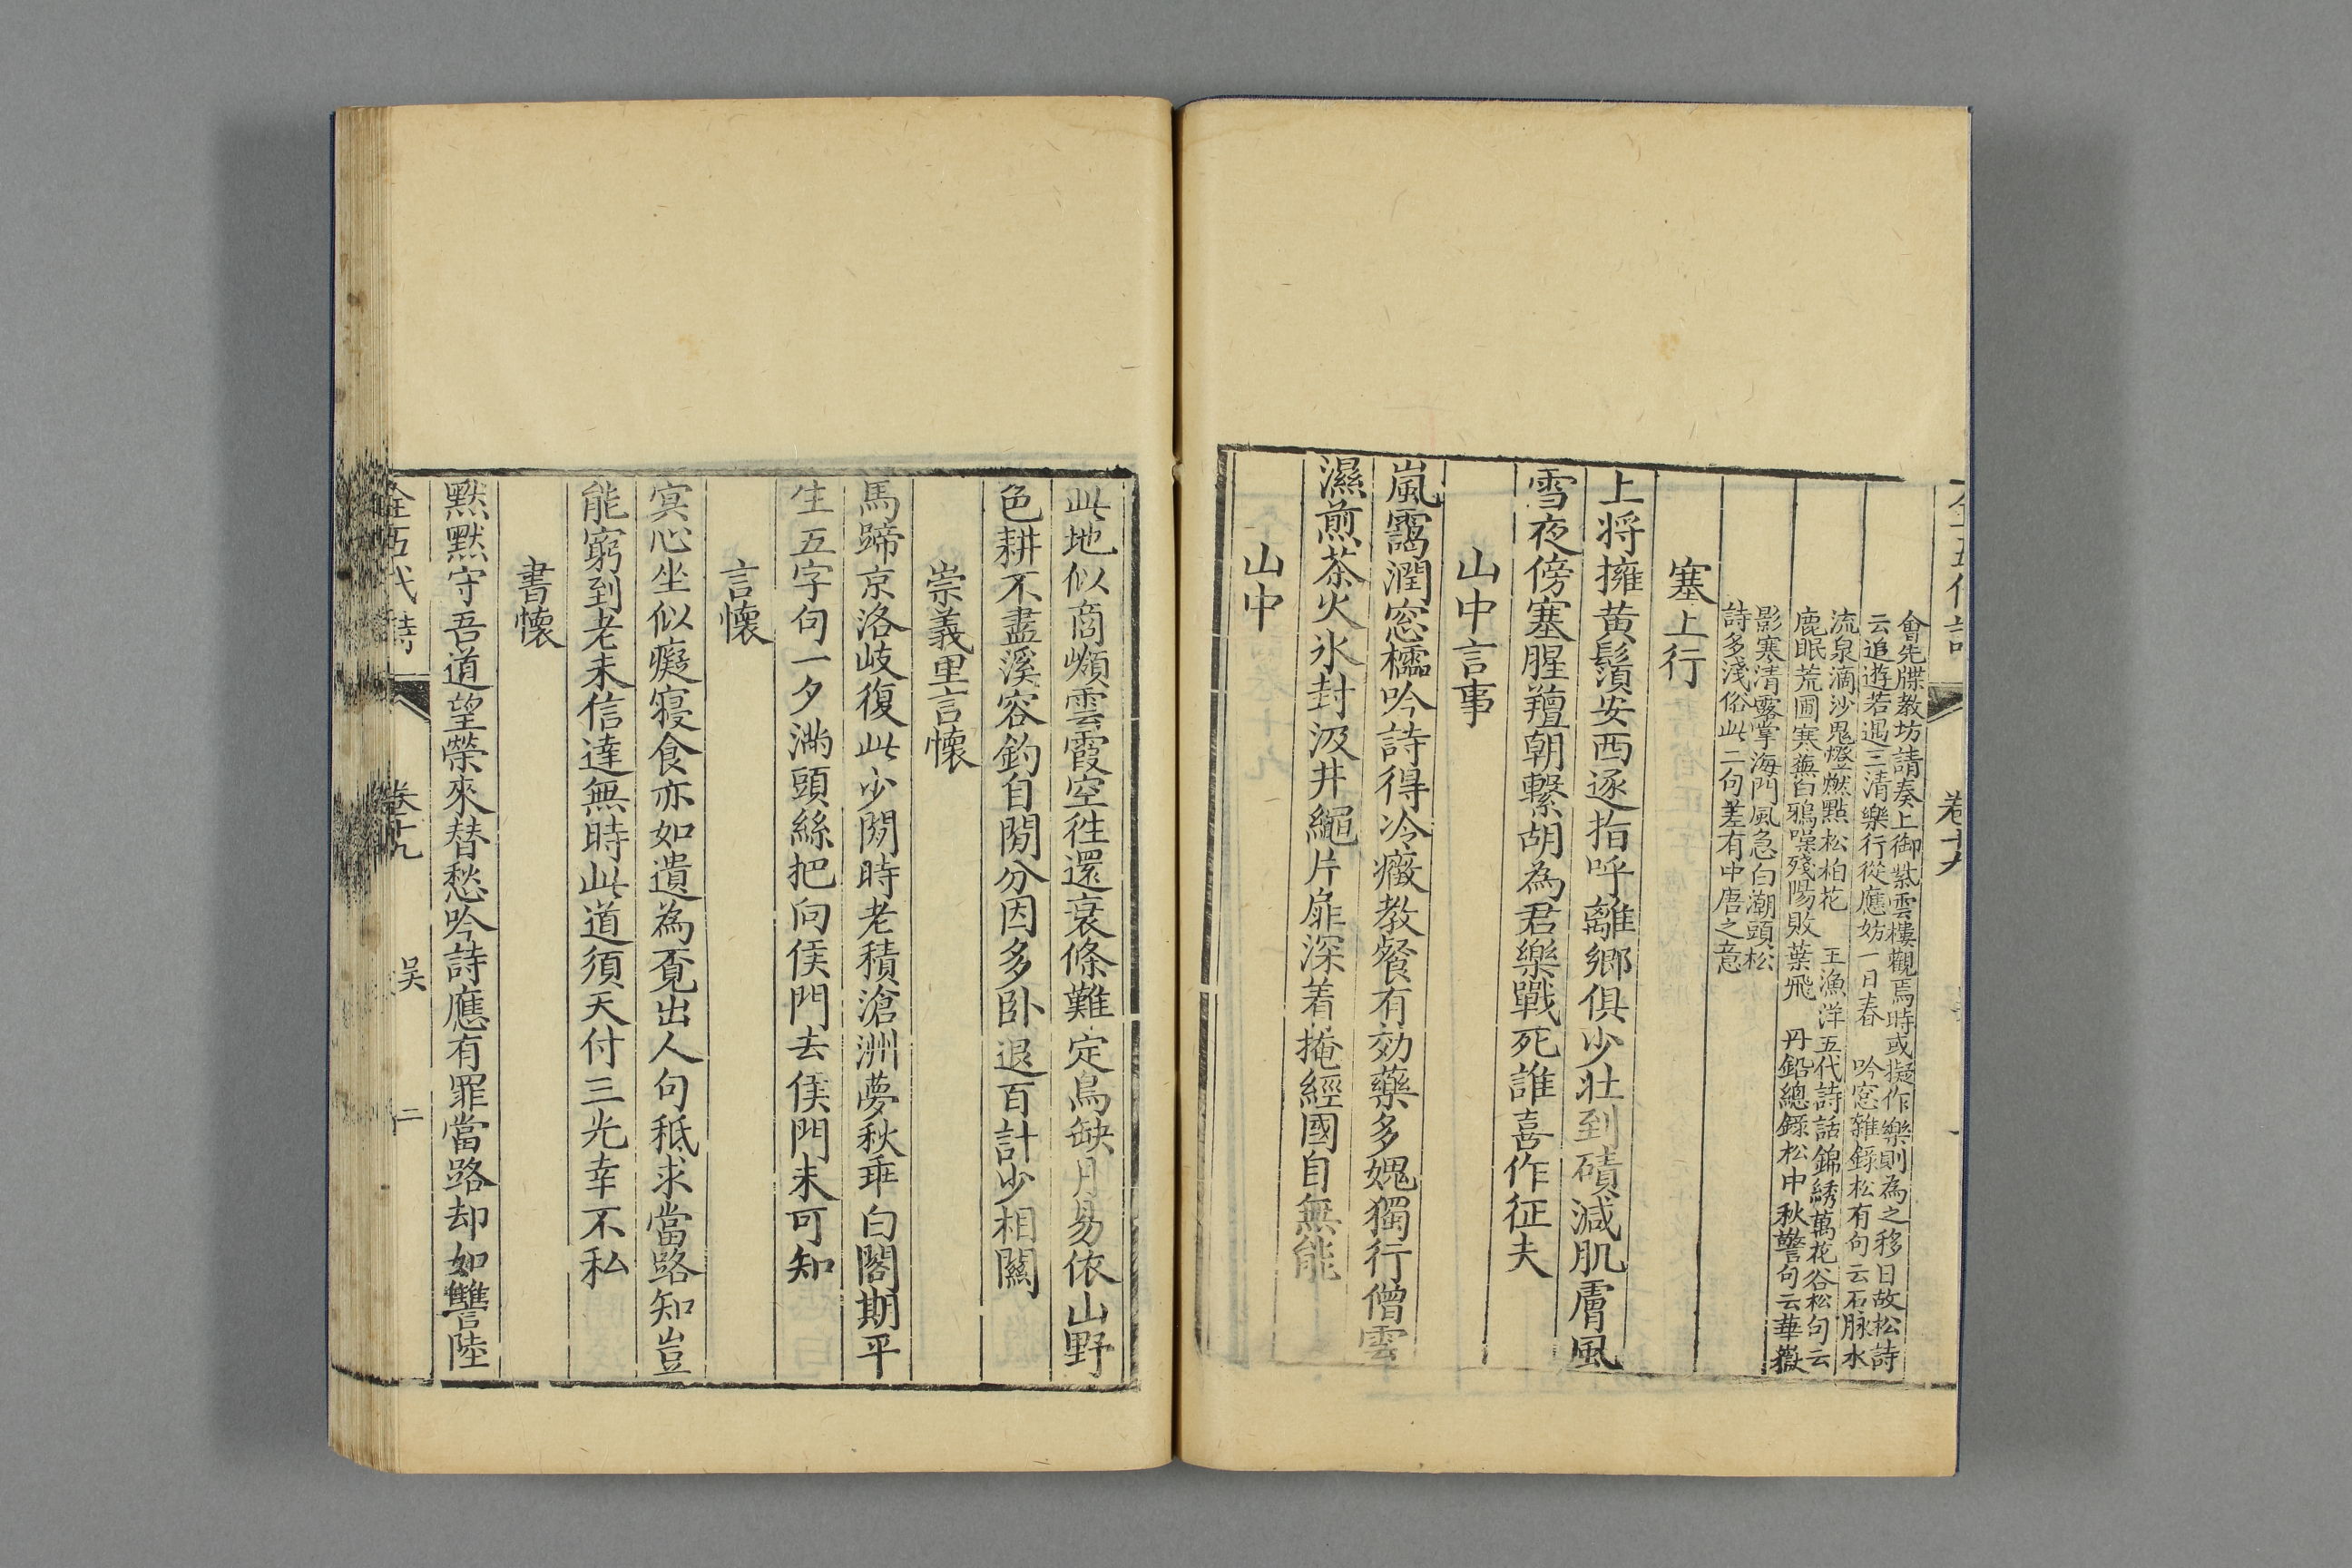 會先牒教坊請奏上御紫雲樓觀焉時或擬作樂則為之移日故松詩
云追遊若遇三清樂行從應妨一日春 吟窓雜錄松有句云石脉水
流泉滴沙鬼燈燃點松柏花 王漁洋五代詩話錦綉萬花谷松句云
鹿眠荒圃寒蕪白鴉噪殘陽敗葉飛 丹鉛總錄松中秋警句云華嶽
影寒清露掌海門風急白潮頭松
詩多淺俗此二句差有中唐之意
塞上行
上將擁黄鬚安西逐指呼離鄉俱少壯到磧減肌膚風
雪夜傍塞腥羶朝繫胡為君樂戰死誰喜作征夫
山中言事
嵐靄潤窓櫺吟詩得冷癥教餐有効藥多媿獨行僧雲
濕煎茶火氷封汲井繩片扉深着掩經國自無能
山中
此地似商嶺雲霞空徃還衰條難定鳥缺月易依山野
色耕不盡溪容釣自閒分因多卧退百計少相關
崇義里言懷
馬蹄京洛岐復此少閒時老積滄洲夢秋乖白閣期平
生五字句一夕滿頭絲把向侯門去侯門未可知
言懷
冥心坐似癡寢食亦如遺為覔出人句秪求當路知豈
能窮到老未信達無時此道須天付三光幸不私
書懷
黙黙守吾道望榮來替愁吟詩應有罪當路却如讐陸
全五代詩 卷十九 吴 二